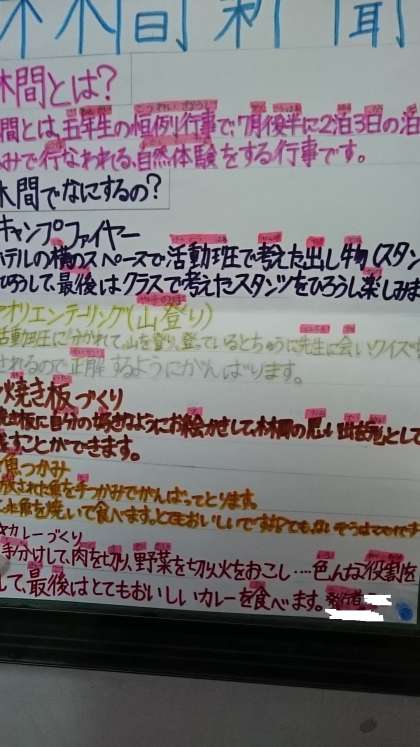 林間新聞
林間とは?
間とは、五年生の恒例行事で、7月後半に2泊3日の泊
みで行なわれる、自然体験をする行事です。
林間でなにするの?
キャンプファイヤー
テルの横のスペースで活動班で考えた出し物(スタン
ひろうして、最後はクラスで考えたスタンツをひろうし楽しみま
オリエンテーリング(山登り)
活動班に分かれて、山を登り、登っているとちゅうに先生に会いクイズを
されるので正解するようにがんばります。
焼き板づくり
焼き板に自分の好きなようにお絵かきして、林間の思い出を形として
残すことができます。
魚つかみ
された魚を手づかみでがんばってとります。
魚を焼いて食べます。とてもおいしいです
カレーづくり
手分けして、肉を切り、野菜を切り、火をおこし…色んな役割を
して、最後はとてもおいしいカレーを食べます。発行者